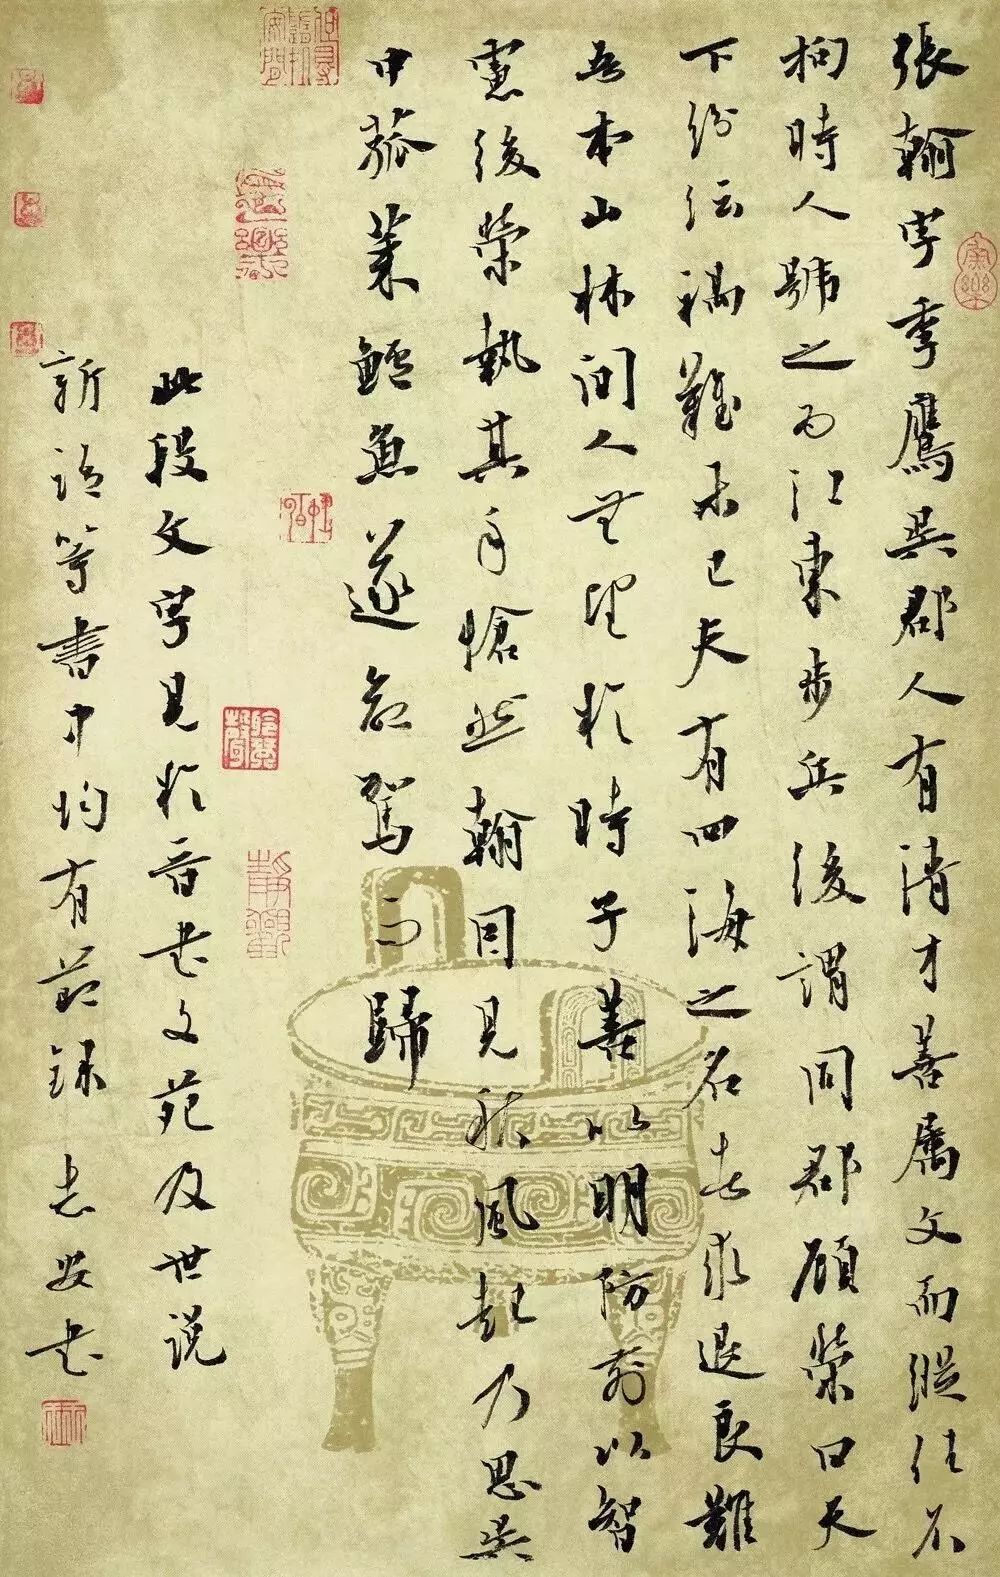 張翰字季鷹吳郡人有清才善屬文而縱任不
拘時人號之為江東步兵後謂同郡顧榮曰天
下紛紜禍難未已夫有四海之名者求退良難
吾本山林間人無望於時子善以明防前以智
慮後榮執其手愴然翰因見秋風起乃思吳
中菰菜鱸魚遂命駕而歸
此段文字見於晉書文苑及世說
新語等書中均有節錄 志安書